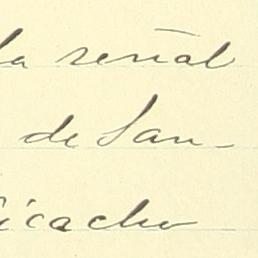 la señal
de San-
icacho